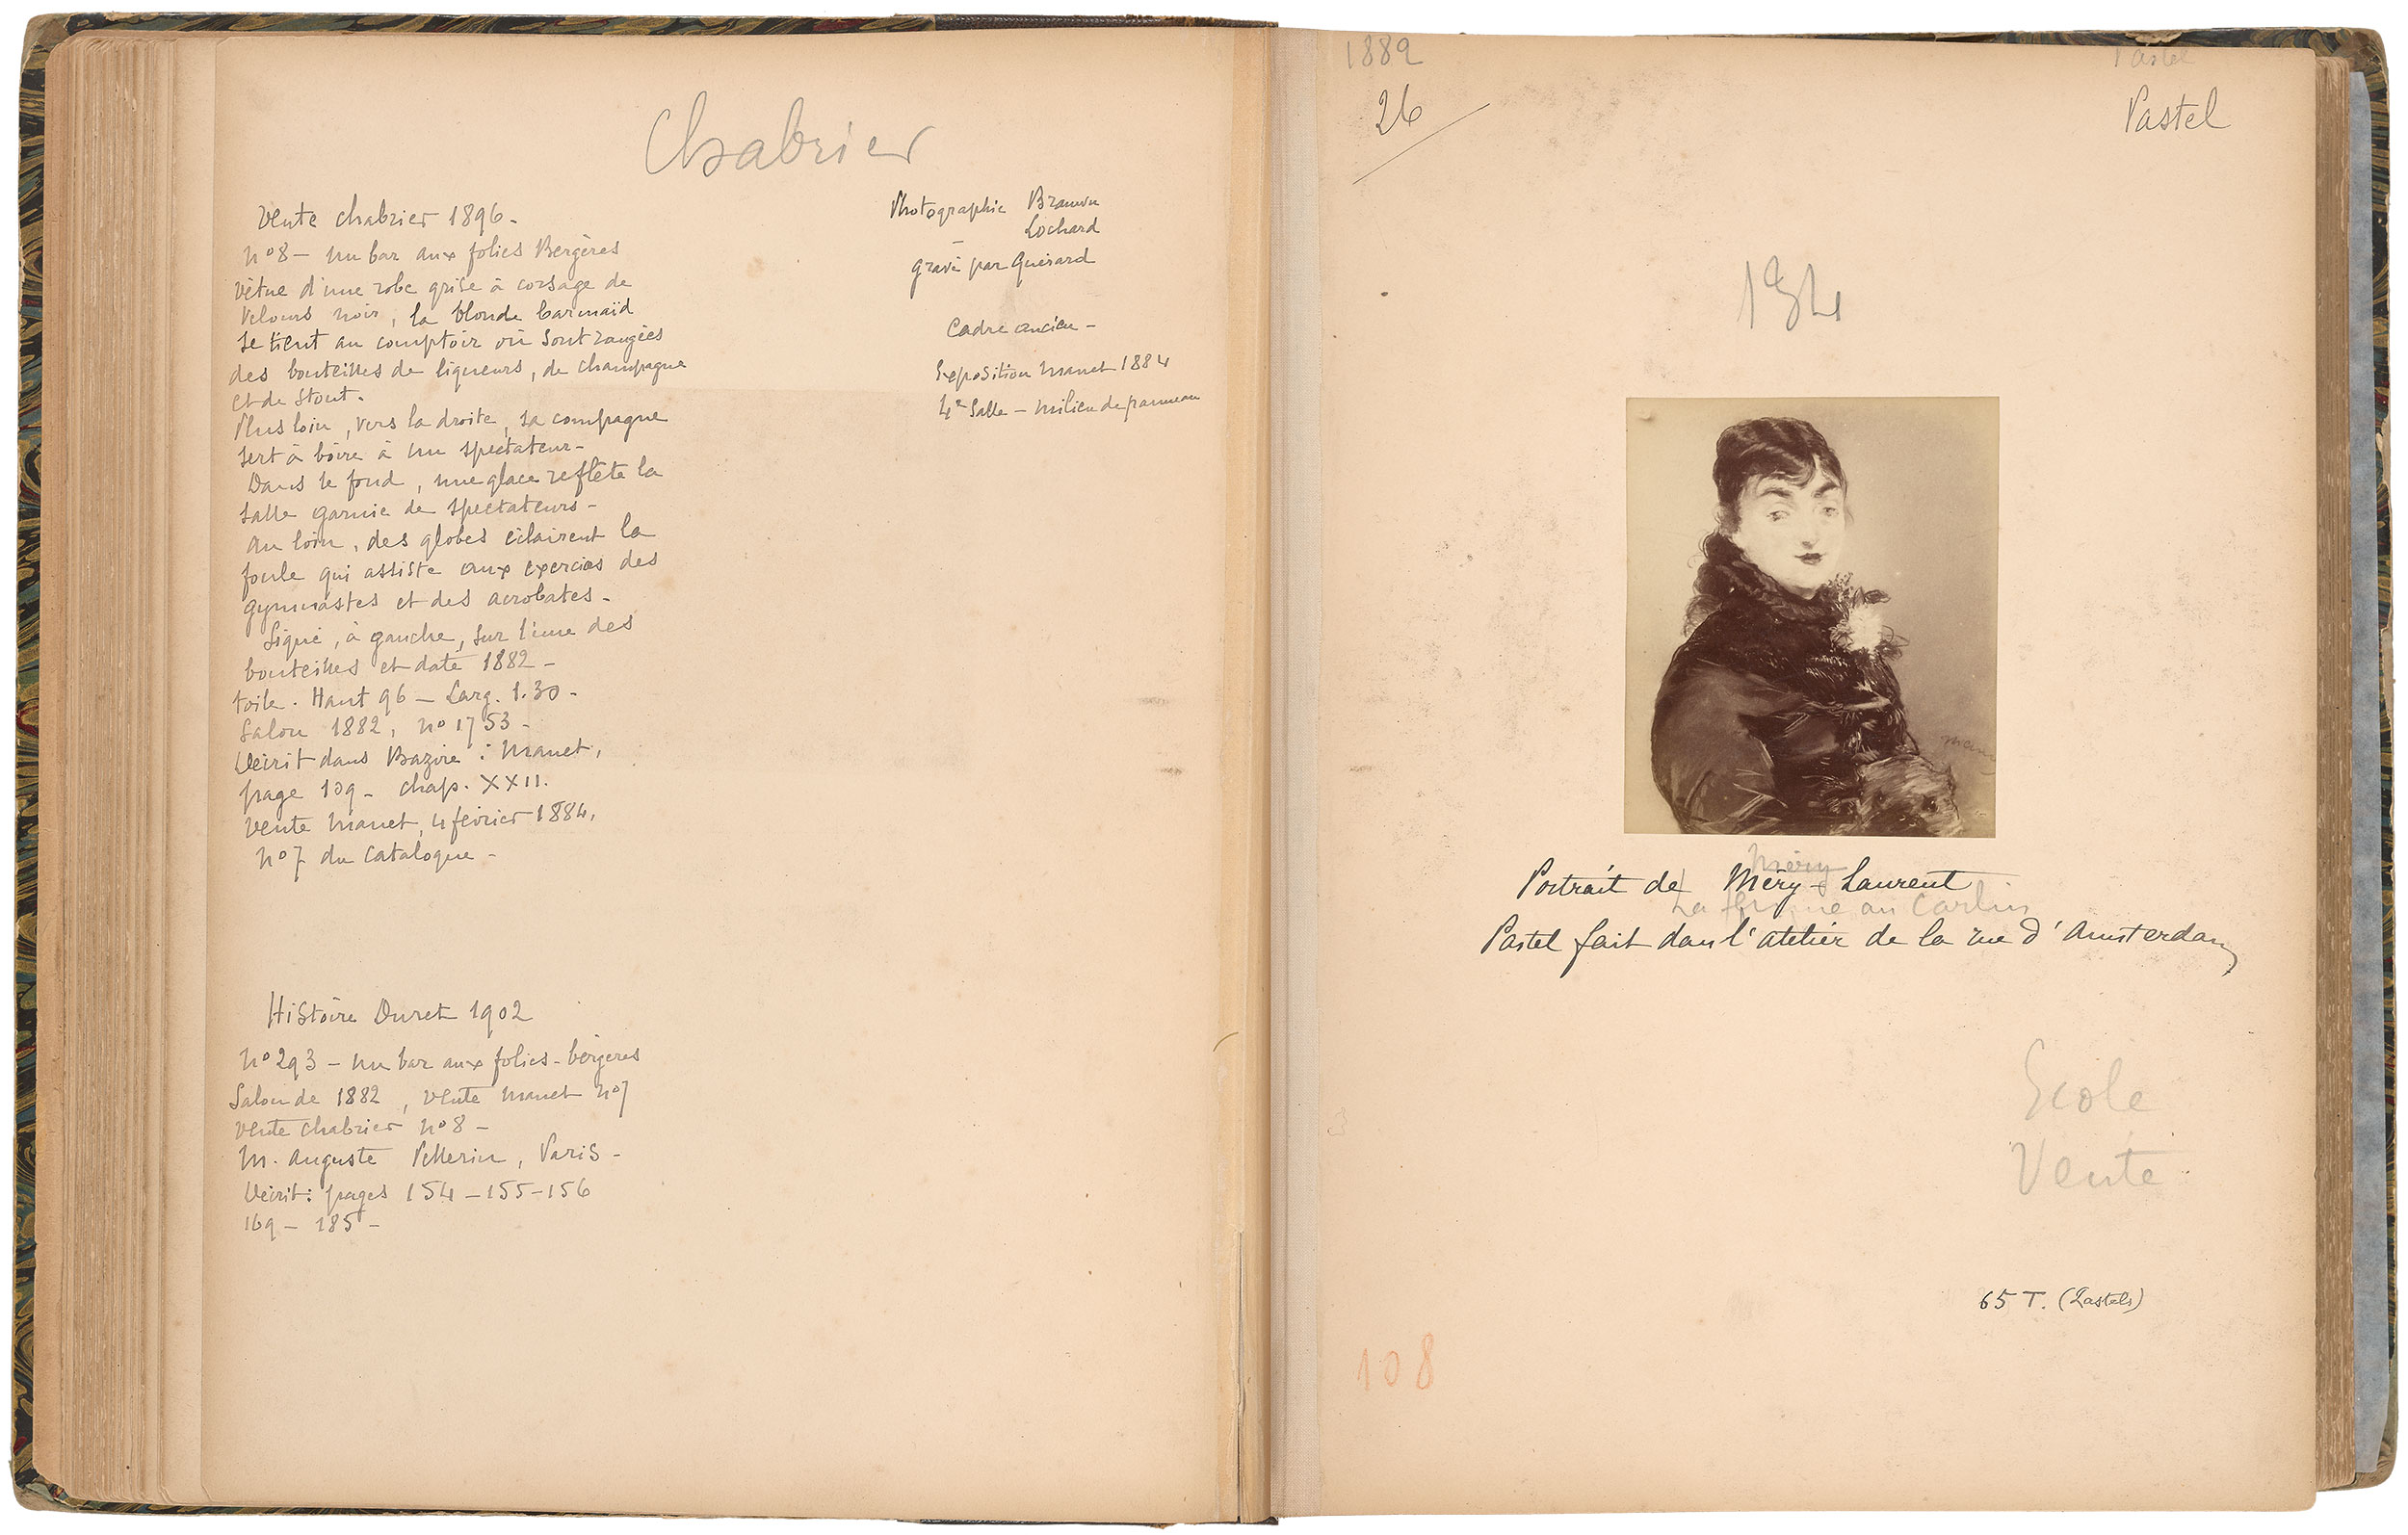 Chabrier
Vente Chabrier 1896 -
no 8 - un bar aux folies Bergères
vêtue d'une robe grise à corsage de
velours noir, la blonde barmaïd
se tient au comptoir où sont rangées
des bouteilles de liqueurs, de champagne
et de stout.
Plus loin, vers la droite, sa compagne
sert à boire à un spectateur -
Dans le fond, une glace reflète la
salle garnie de spectateurs -
au loin, des globes éclairent la
foule qui assiste aux exercices des
gymnastes et des acrobates -
Signé, à gauche, sur l'une des
bouteilles et daté 1882 -
toile. Haut 96 - Larg. 1.30 -
Salon 1882, no 1753 -
Décrit dans Bazire : Manet,
page 139 - chap. XXII.
Vente Manet, 4 février 1884,
no 7 du catalogue -
Histoire Duret 1902
no 293 - un bar aux folies-bergeres
Salon de 1882, vente Manet no 7
vente Chabrier no 8 -
M. Auguste Pellerin, Paris -
Décrit : pages 154 - 155 - 156
169 - 185 -
Photographie Braun
- Lochard
gravé par Guérard
Cadre ancien -
Exposition Manet 1884
4e Salle - milieu de panneau
1882
Pastel
26
Pastel
184
Man
Méry
Portrait de Méry - Laurent
La femme au Carlin
Pastel fait dans l'atelier de la rue d'Amsterdam
Ecole
Vente
65 T. (Pastels)
108